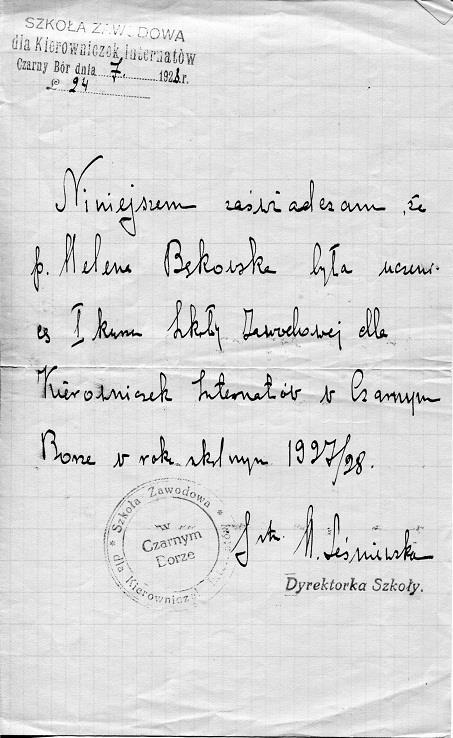 SZKOŁA ZAWODOWA
dla Kierowniczek Internatów
Czarny Bór dnia 7. 1928.r.
L 24
Niniejszem zaświadczam, że
p. Helena Bękowska była uczeni-
cą I kursu Szkoły Zawodowej dla
Kierowniczek Internatów w Czarnym
Borze w roku szkolnym 1927/28.
* Szkoła Zawodowa *
dla Kierowniczek
w
Czarnym
Borze
M. Leśniewska
Dyrektorka Szkoły.